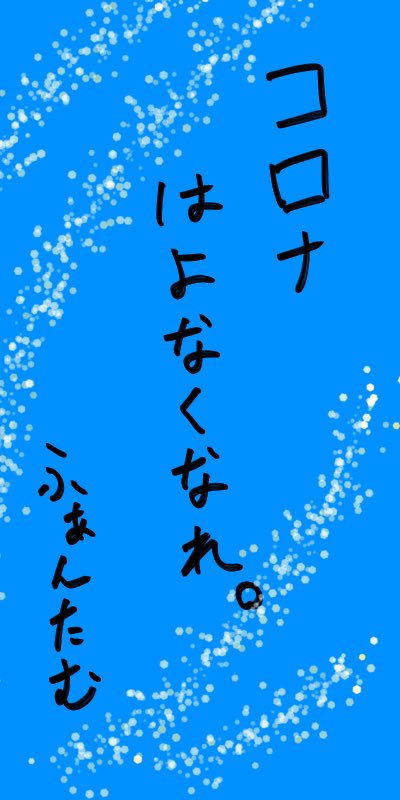 コロナ
はよなくなれ。
ふぁんたむ